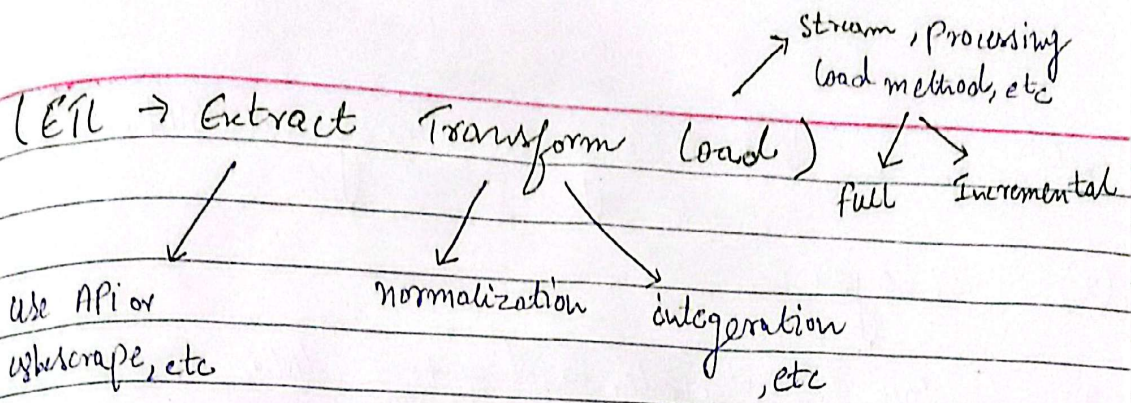 stream, processing
load method, etc
(ETL → Extract Transform Load)
full Incremental
use API or
webscrape, etc
normalization
integeration
, etc